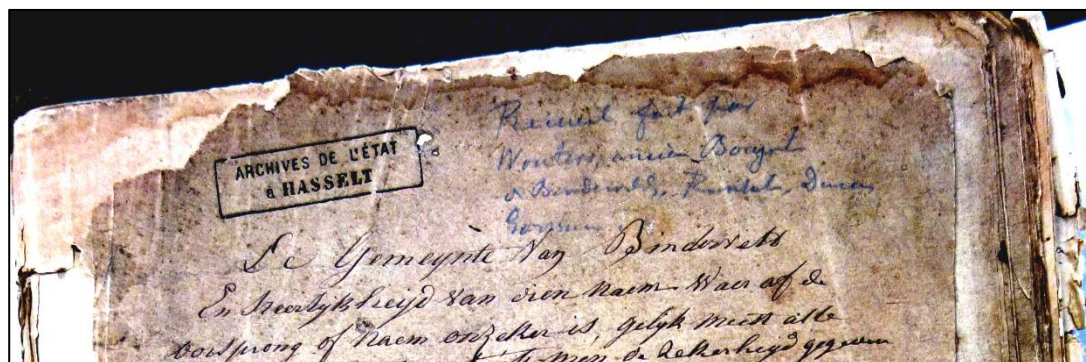 ARCHIVES DE L'ÉTAT
à HASSELT
Recueil fait par
Wouters, ancien
de Binderveld, Duras
Gorssum
De Gemeynte Van Binderveld
En heerlykheijd Van dien Naem Waer af de
oorsprong of Naem onzeker is, gelyk meest alle
men de sekerheyd gegeven